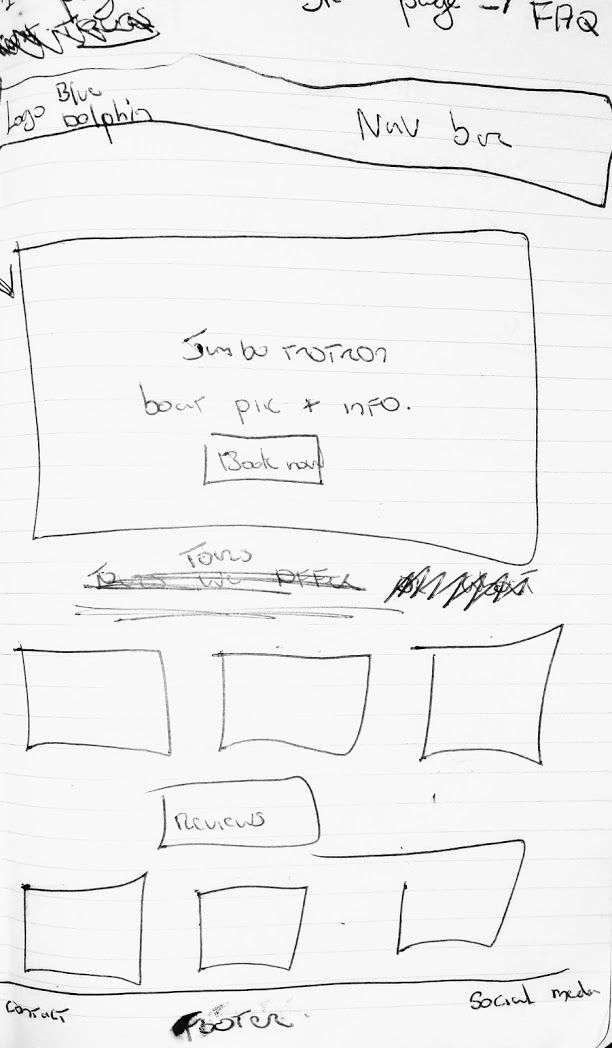 page
FAQ
Logo Blue
Dolphin
Nav bar
Jumbo TROTRON
boat pic + INFO.
Book now
Tours
Tours We OFFER
Reviews
contact
FOOTER.
Social media